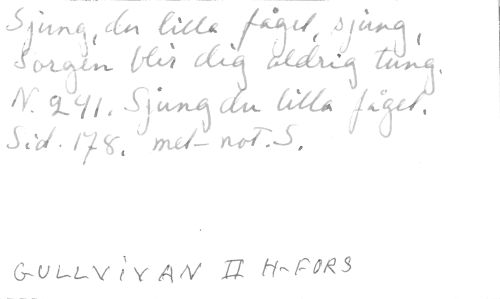 Sjung, du lilla fågel, sjung,
Sorgen blir dig aldrig tung.
N. 241. Sjung du lilla fågel.
Sid. 178. mel-not. S.
GULLVIVAN II H-FORS